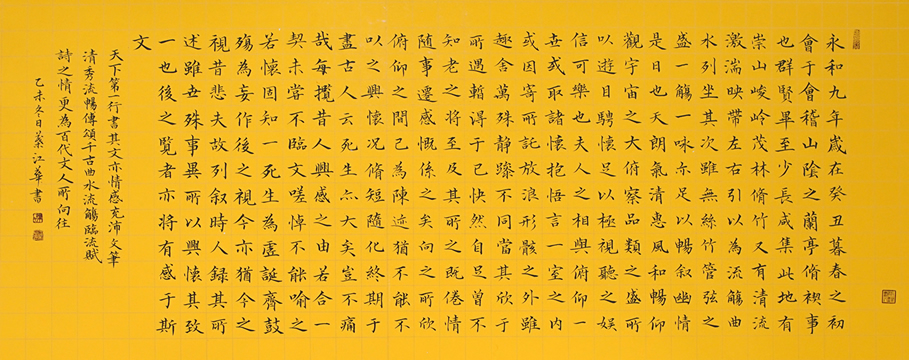 永和九年歲在癸丑暮春之初
會于會稽山陰之蘭亭脩禊事
也群賢畢至少長咸集此地有
崇山峻岭茂林脩竹又有清流
激湍映帶左右引以為流觴曲
水列坐其次雖無絲竹管弦之
盛一觴一咏亦足以暢叙幽情
是日也天朗氣清惠風和暢仰
觀宇宙之大俯察品類之盛所
以遊目騁懷足以極視聽之娛
信可樂也夫人之相與俯仰一
世或取諸懷抱悟言一室之内
或因寄所託放浪形骸之外雖
趣舍萬殊靜躁不同當其欣于
所遇暫得于己快然自足曾不
知老之將至及其所之既倦情
隨事遷感慨係之矣向之所欣
俯仰之間已為陳迹猶不能不
以之興懷況脩短隨化終期于
盡古人云死生亦大矣豈不痛
哉每攬昔人興感之由若合一
契未嘗不臨文嗟悼不能喻之
若懷固知一死生為虛誕齊鼓
殤為妄作後之視今亦猶今之
視昔悲夫故列叙時人録其所
述雖世殊事異所以興懷其致
一也後之覽者亦將有感于斯
文
天下第一行書其文亦情感充沛文筆
清秀流暢傳頌千古曲水流觴臨流賦
詩之情更為百代文人所向往
乙未冬日蔡江華書